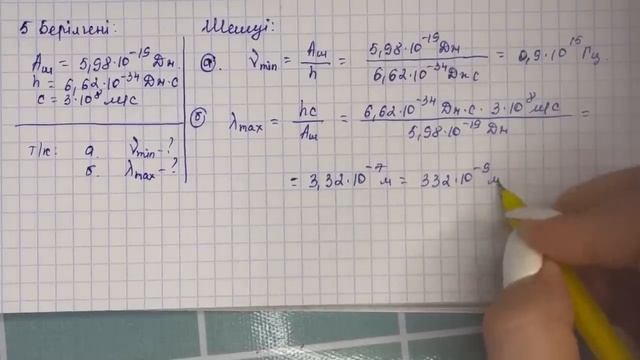 5 Берілгені:
A_ш = 5,98·10⁻¹⁹ Дж.
h = 6,62·10⁻³⁴ Дж·с
c = 3·10⁸ м/с
т/к: а. ν_min-?
б. λ_max-?
Шешуі:
а. ν_min = A_ш/h = 5,98·10⁻¹⁹ Дж / 6,62·10⁻³⁴ Дж·с = 0,9·10¹⁵ Гц.
б λ_max = hc/A_ш = 6,62·10⁻³⁴ Дж·с · 3·10⁸ м/с / 5,98·10⁻¹⁹ Дж =
= 3,32·10⁻⁷ м = 332·10⁻⁹ м